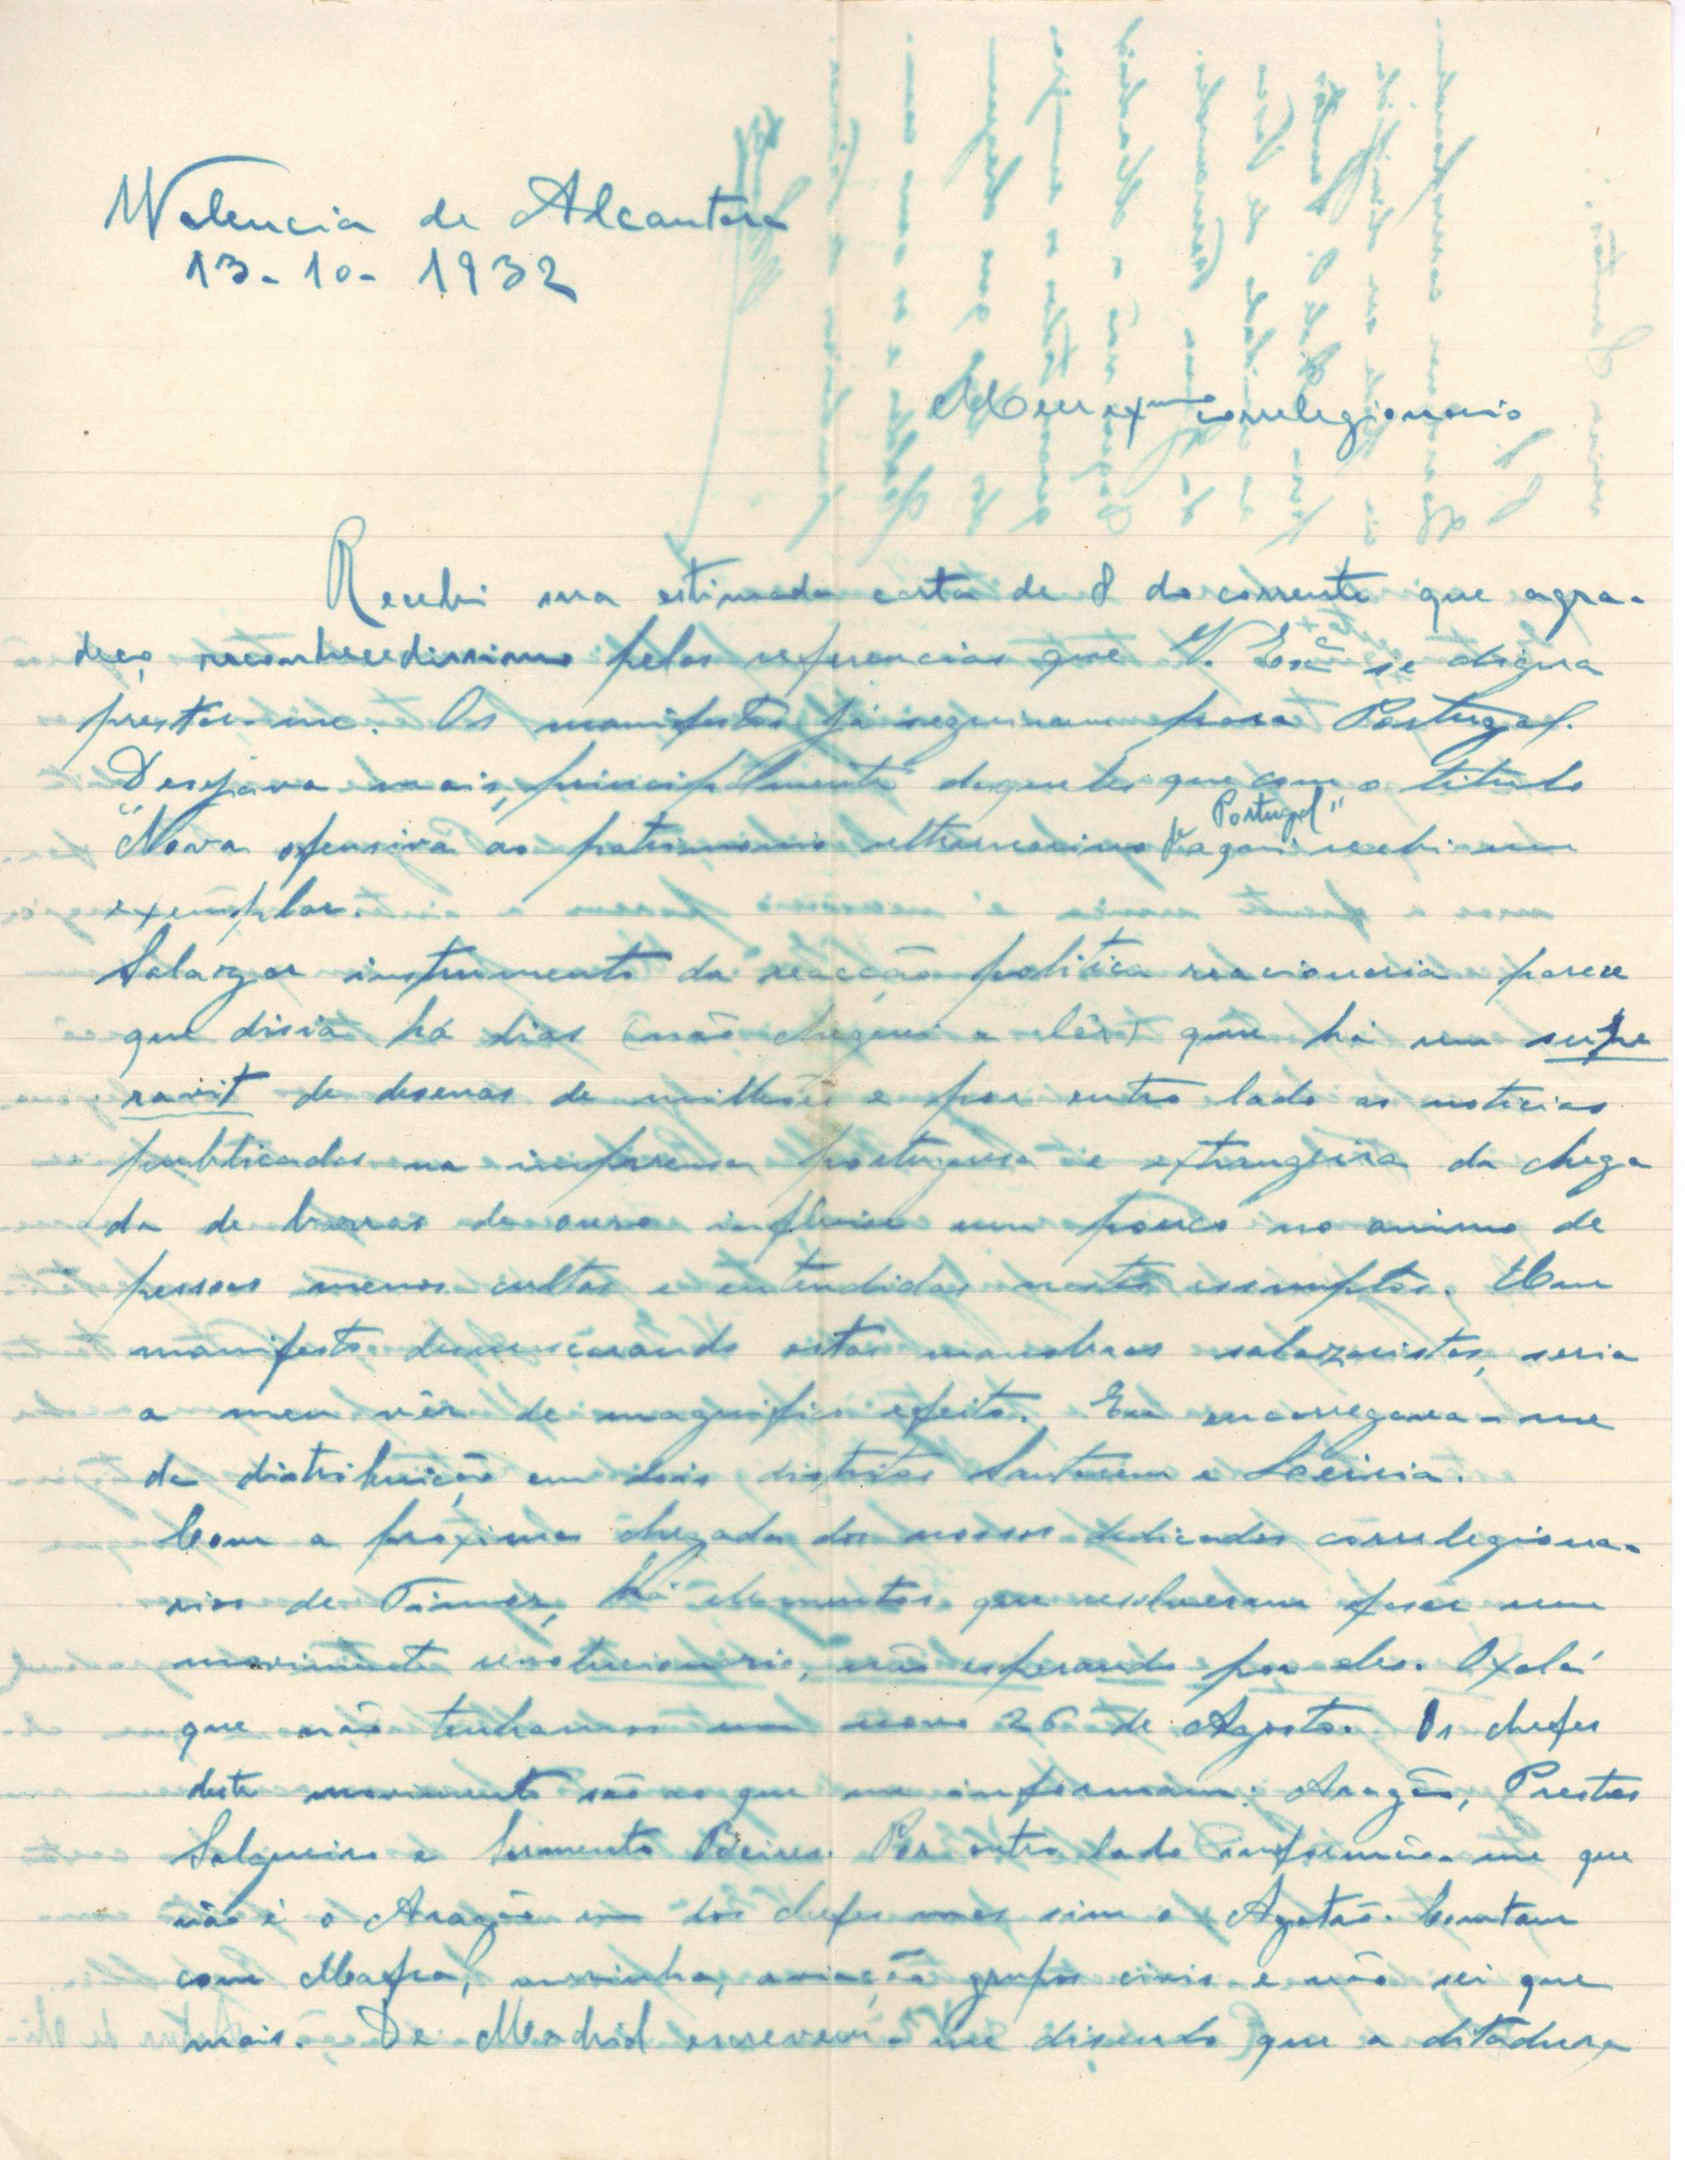 Valencia de Alcantara
13-10-1932
Meu exmo correlegionario
Recebi sua estimada carta de 8 do corrente que agra-
deço reconhecedissimo pelas referencias que V. Exa se digna
prestar-me. Os manifestos já seguiram para Portugal.
Desejava mais, principalmente daqueles que com o titulo
"Nova ofensiva ao patrimonio ultramarino de Portugal"
recebi um
exemplar.
Salazar instrumento da reacção politica reacionaria parece
que disia há dias (não cheguei a lêr) que há um supe
ravit de desenas de milhões e por outro lado as noticias
publicadas na imprensa portuguesa e extrangeira da chega
da de barras de ouro influiu um pouco no animo de
pessoas menos cultas e entendidas nestes assumptos. Um
manifesto desmascarando estas manobras salazaristas, seria
a meu vêr de magnifico efeito. Eu encarregava-me
da distribuição em dois distritos Santarem e Leiria.
Com a proxima chegada dos nossos dedicados correlegiona-
rios de Timor, há elementos que resolveram faser um
movimento revolucionario, não esperando por eles. Oxalá
que não tenhamos um novo 26 de Agosto. Os chefes
deste movimento são ao que me informam: Aragão, Prestes
Salgueiro e Sarmento Beires. Por outro lado informão-me que
não é o Aragão um dos chefes mas sim o Agatão. Contam
com Mafra, marinha, aviação grupos civis e não sei que
mais. De Madrid escrevem-me disendo que a ditadura